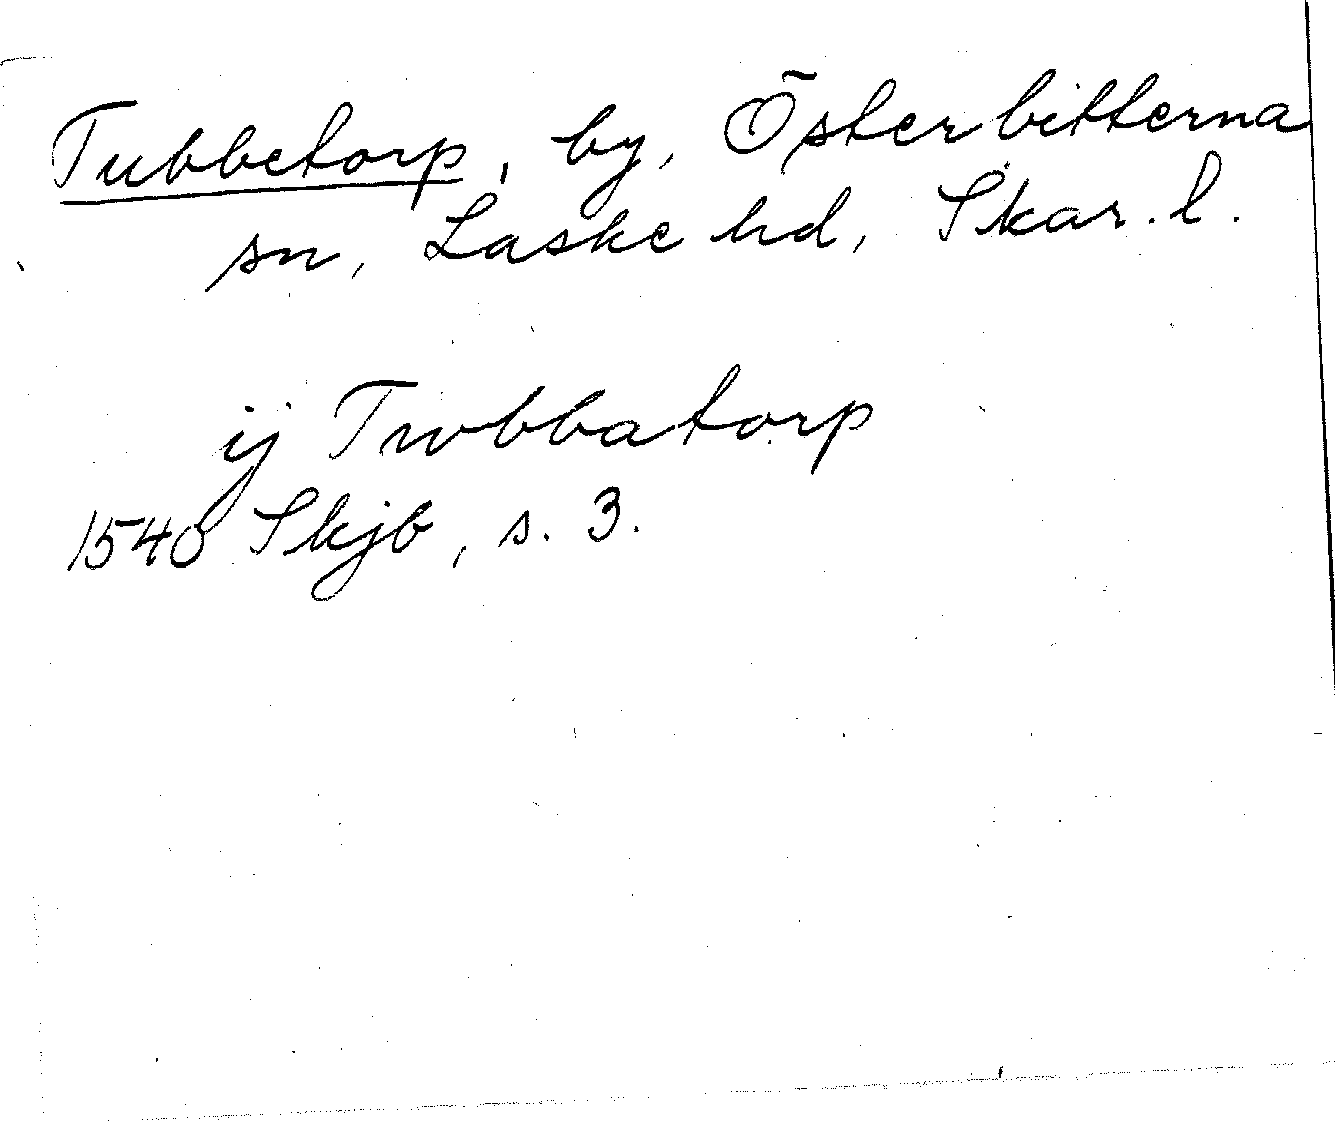 Tubbetorp, by, Österbitterna
sn, Laske hd, Skar. l.
ij Twbbatorp
1540 Skjb, s. 3.